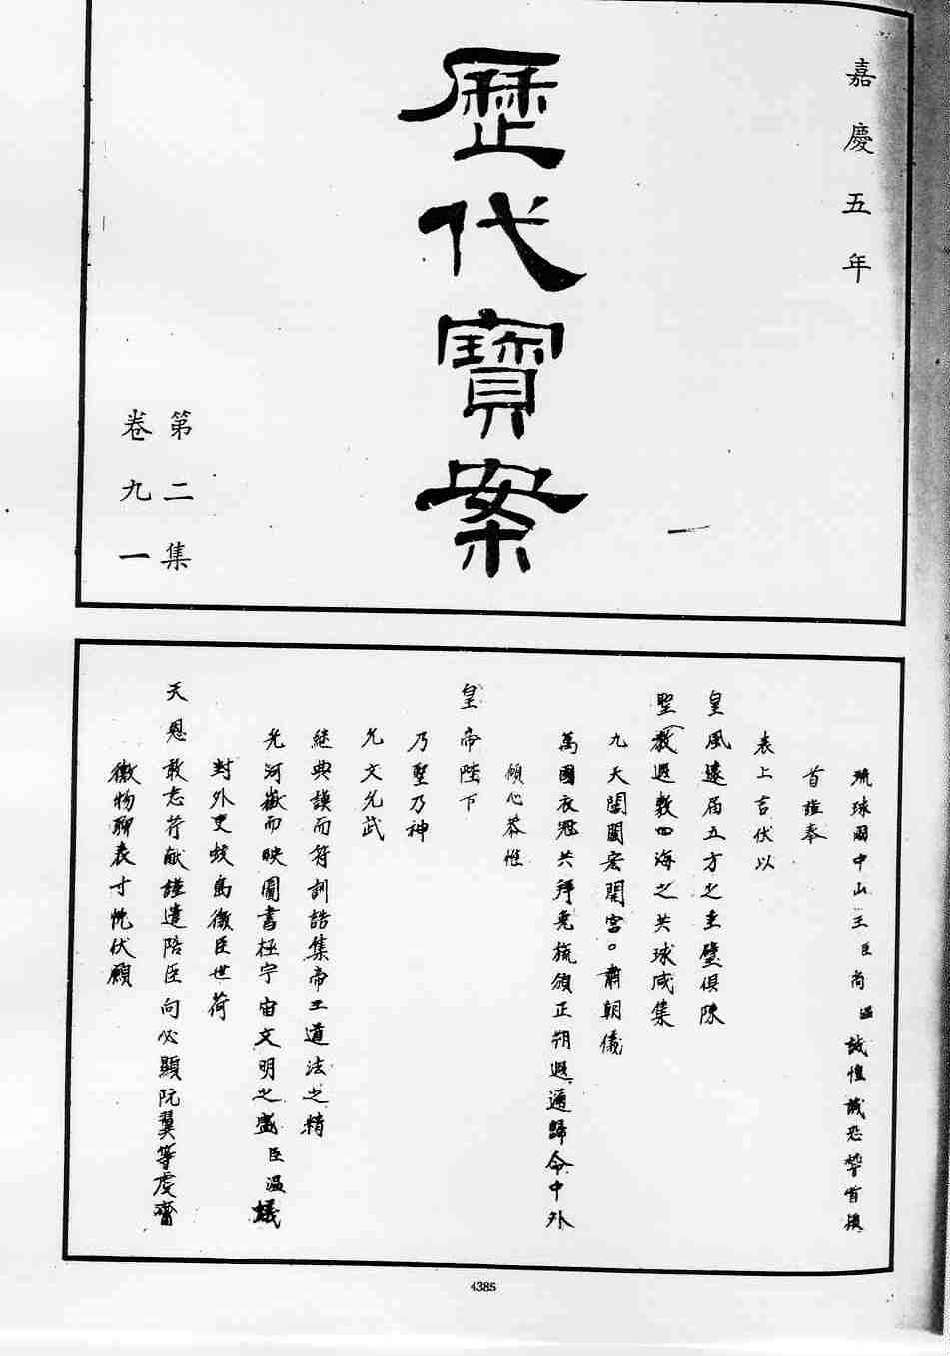 嘉慶五年
歷代寶案
第二集
卷九一
琉球國中山王臣尚溫誠惶誠恐稽首頓
首謹奉
表上言伏以
皇風遠届五方之圭璧俱陳
聖教遐敷四海之共球咸集
九天閶闔宏開宮。肅朝儀
萬國衣冠共拜冕旒頒正朔遐邇歸命中外
傾心恭惟
皇帝陛下
乃聖乃神
允文允武
紹典謨而符訓誥集帝王道法之精
光河嶽而映圖書極宇宙文明之盛臣溫蟻
封外吏蛟島微臣世荷
天恩敢忘芹献謹遣陪臣向必顯阮翼等虔齎
微物聊表寸忱伏願
4385